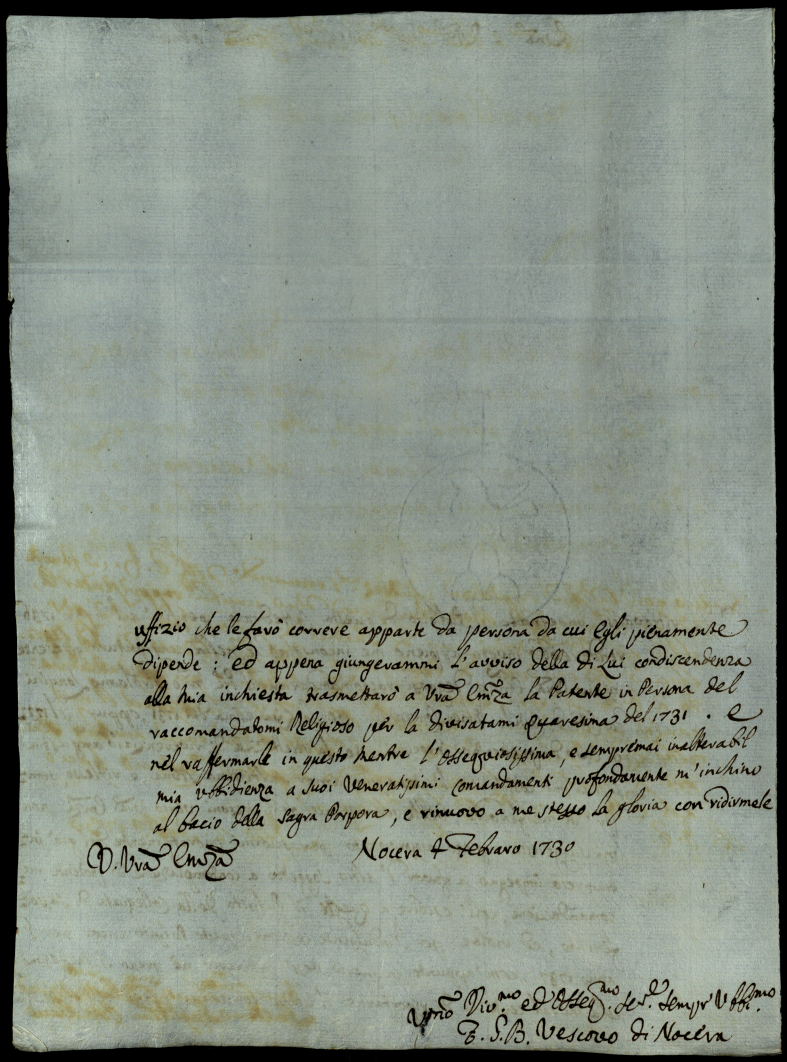 uffizio che le farò correre apparte da persona da cui egli pienamente
dipende : ed appena giungerammi l'avviso della di Lui condiscendenza
alla mia inchiesta trasmettarò a Vra Emza la Patente in Persona del
raccomandatomi Religioso per la divisatami Quaresima del 1731 . e
nel raffermarle in questo mentre l'ossequiosissima, e sempremai inalterabil
mia ubbidienza a suoi Veneratissimi comandamenti profondamente m'inchino
al bacio della Sagra Porpora, e rinuovo a me stesso la gloria con ridirmele
D. Vra Emza
Nocera 4 Febraro 1730
Vmo Div.mo ed Osseq.mo sempr Ubbi.mo
Vescovo di Nocera